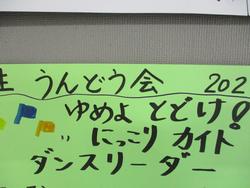 生 うんどう会 202
ゆめよ とどけ!
〃 にっこり カイト
ダンスリーダー